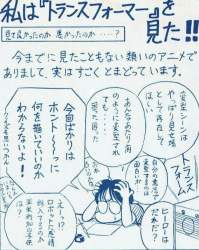 私は『トランスフォーマー』を
見た!!
見て良かったのか 悪かったのか……?
今までに見たこともない類いのアニメで
ありまして、実はすごくとまどっています。
変型シーンは
やっぱり見せ場
として存在して
ほしい。
あんなあたり前
のように変型
されても…
困った困った
自分の意志で
変型するのは
面白いが
今回ばかりは
ホント〜〜っに
何を描いていいのか
わからないよ!!
トランス
フォーム
ヒーローは
だれだ?
えーっ!?
ロボットに感情